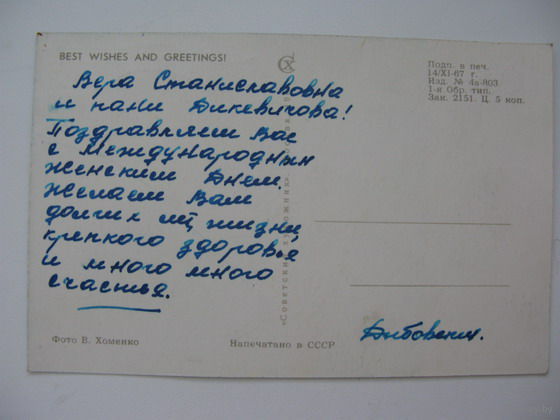 BEST WISHES AND GREETINGS!
Вера Станиславовна
и пани Бикевичова!
Поздравляем Вас
с Международным
женским Днем.
Желаем Вам
долгих лет жизни,
крепкого здоровья
и много много
счастья.
Фото В. Хоменко
Напечатано в СССР
«Советский художник»
Подп. в печ.
14/XI-67 г.
Изд. № 4а-803
1-я Обр. тип.
Зак. 2151. Ц. 5 коп.